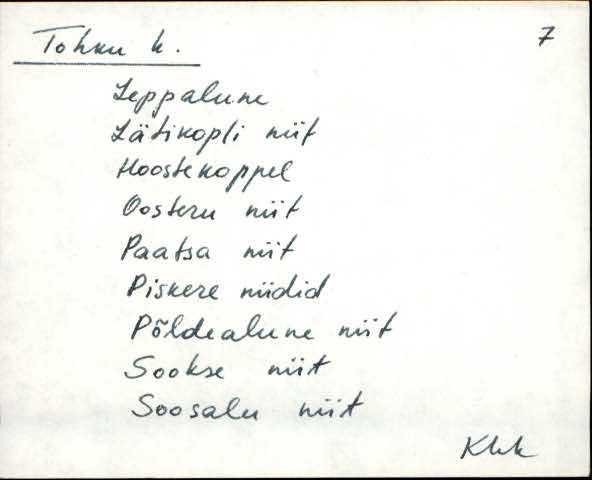 Tohku k.
7
Leppalune
Lätikopli niit
Hoostekoppel
Oosteru niit
Paatsa niit
Piskere niidid
Põldealune niit
Sookse niit
Soosalu niit
Khk